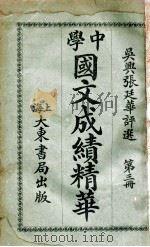 吳興張廷華評選
第三冊
中學
國文成績精華
上海
大東書局出版